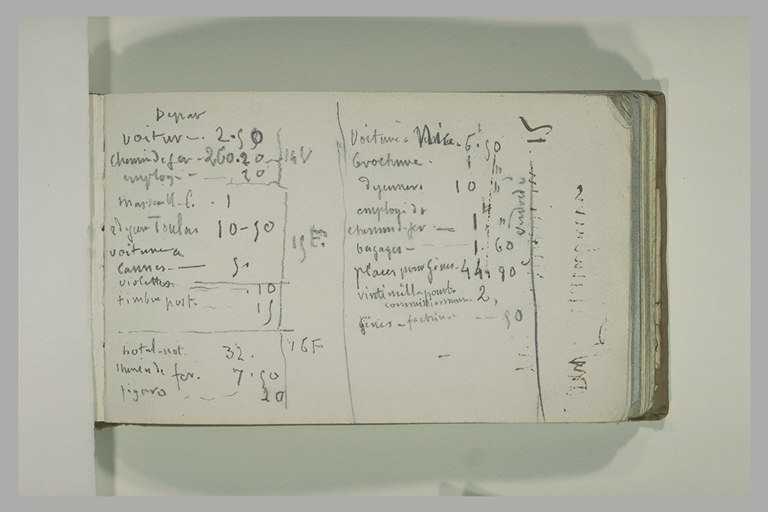 Depar
voiture. 2.50
chemin de fer - 260.20
employé - 20
14 V
Marseille f. - 1
djeun Toulon 10-50
voiture a
Cannes - 5
violettes .10
timbre poste 15
15 F.
hotel-not. 32.
chemin de fer. 7.50
figaro 20
16 F
Voiture a Nice. 6.50
brochure. 1 "
djeuner. 10 "
employé du
chemin de fer - 1 "
bagages - 1.60
places pour Gênes. 44. 90
vintimille pourb.
commissionnaire 2,
Gênes - facteur - 50
vendredi
15